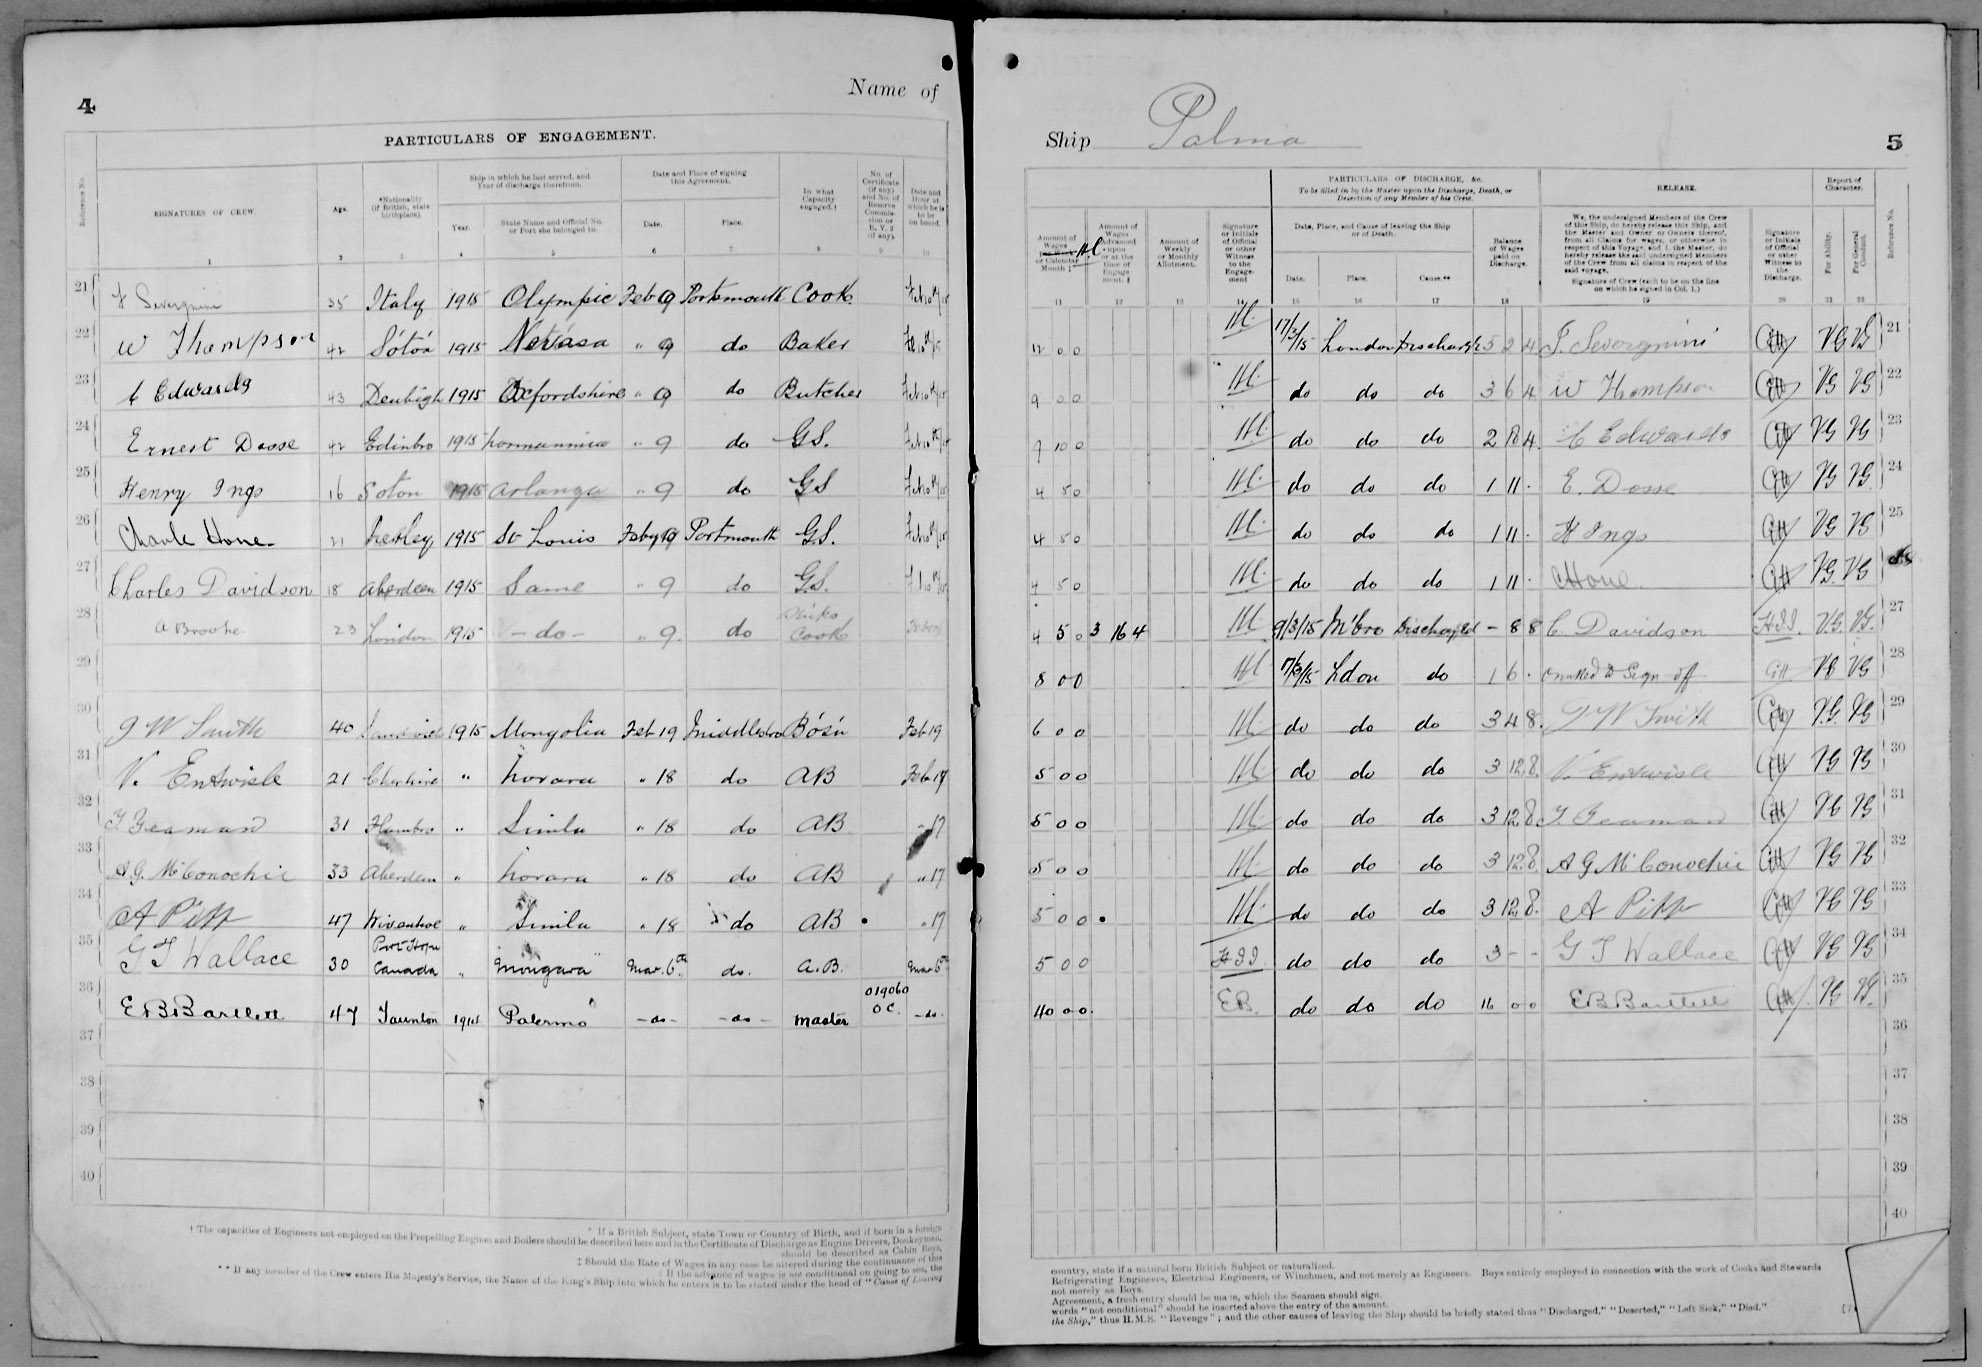 4
Name of
PARTICULARS OF ENGAGEMENT.
Reference No.
SIGNATURES OF CREW.
Age.
*Nationality (If British, state birthplace).
Ship in which he last served, and Year of discharge therefrom.
Year.
State Name and Official No. or Port she belonged to.
Date and Place of signing this Agreement.
Date.
Place.
In what Capacity engaged.†
No. of Certificate (if any) and No. of Reserve Commission or R. V. 2 (if any).
Date and Hour at which he is to be on board.
1 2 3 4 5 6 7 8 9 10
21 F Severgnini 35 Italy 1915 Olympic Feb 9 Portsmouth Cook
22 W Thompson 42 Sótón 1915 Nevasa " 9 do Baker
23 C Edwards 43 Denbigh 1915 Oxfordshire " 9 do Butcher
24 Ernest Dosse 42 Edinbro 1915 " 9 do G.S.
25 Henry Ings 16 Soton 1915 Arlanza " 9 do GS
26 Hone 21 Netley 1915 St Louis Feby 9 Portsmouth G.S.
27 Charles Davidson 18 Aberdeen 1915 Same " 9 do G.S.
28 A Brooke 23 London 1915 - do - " 9. do Ships Cook
29
30 J W Smith 40 1915 Mongolia Feb 19 Middlesbro Bósń Feb 19
31 V. Entwisle 21 Cheshire " Novara " 18 do AB Feb 17
32 T. Yeaman 31 " Simla " 18 do AB " 17
33 A.G. McConochie 33 Aberdeen " Novara " 18 do AB " 17
34 A Pipp 47 Wivenhoe " Simla " 18 do AB " 17
35 G T Wallace 30 Port Hope Canada " Mongara Mar. 6th do. A.B. Mar 6th
36 E B Bartlett 47 Taunton 1914 Palermo - do - - do - Master 019060 OC. - do -
37
38
39
40
* If a British Subject, state Town or Country of Birth, and if born in a foreign
† The capacities of Engineers not employed on the Propelling Engines and Boilers should be described here and in the Certificate of Discharge as Engine Drivers, Donkeymen,
should be described as Cabin Boys,
‡ Should the Rate of Wages in any case be altered during the continuance of this
If the advance of wages is not conditional on going to sea, the
** If any member of the Crew enters His Majesty's Service, the Name of the King's Ship into which he enters is to be stated under the head of "Cause of Leaving
Ship Palma
5
PARTICULARS OF DISCHARGE, &c.
To be filled in by the Master upon the Discharge, Death, or Desertion of any Member of his Crew.
RELEASE.
Report of Character.
Amount of Wages or Calendar Month ‡
Amount of Wages Advanced upon or at the time of Engagement. ‡
Amount of Weekly or Monthly Allotment.
Signature or Initials of Official or other Witness to the Engagement
Date, Place, and Cause of leaving the Ship or of Death.
Date.
Place.
Cause.**
Balance of Wages paid on Discharge.
We, the undersigned Members of the Crew of this Ship, do hereby release this Ship, and the Master and Owner or Owners thereof, from all Claims for wages, or otherwise in respect of this Voyage, and I, the Master, do hereby release the said undersigned Members of the Crew from all claims in respect of the said voyage.
Signature of Crew (each to be on the line on which he signed in Col. 1.)
Signature or Initials of Official or other Witness to the Discharge.
For Ability.
For General Conduct.
Reference No.
11 12 13 14 15 16 17 18 19 20 21 22
12 0 0 17/3/15 London Discharge 5 2 4 F. Severgnini VG VG 21
9 0 0 do do do 3 6 4 W Thompson VG VG 22
9 10 0 do do do 2 4 C Edwards VG VG 23
4 5 0 do do do 1 11 · E. Dosse VG VG 24
4 5 0 do do do 1 11 · H Ings VG VG 25
4 5 0 do do do 1 11 · C Hone VG. VG
4 5 0 3 16 4 9/3/15 M'bro Discharged - 8 8 C. Davidson VG. VG. 27
8 0 0 17/3/15 Ldon do 1 6 · omitted to Sign off VG VG 28
6 0 0 do do do 3 4 8. J W Smith V.G. VG 29
5 0 0 do do do 3 12 8. V. Entwisle VG VG 30
5 0 0 do do do 3 12 8. T. Yeaman VG VG 31
5 0 0 do do do 3 12 8. A G McConochie VG VG 32
5 0 0 do do do 3 12 8. A Pipp VG VG 33
5 0 0 do do do 3 - - G T Wallace VG VG 34
40 0 0. EB. do do do 16 0 0 EB Bartlett VG VG. 35
36
37
38
39
40
country, state if a natural born British Subject or naturalized.
Refrigerating Engineers, Electrical Engineers, or Winchmen, and not merely as Engineers. Boys entirely employed in connection with the work of Cooks and Stewards
not merely as Boys.
Agreement, a fresh entry should be made, which the Seamen should sign.
words "not conditional" should be inserted above the entry of the amount.
the Ship," thus H.M.S. "Revenge"; and the other causes of leaving the Ship should be briefly stated thus "Discharged," "Deserted," "Left Sick," "Died."